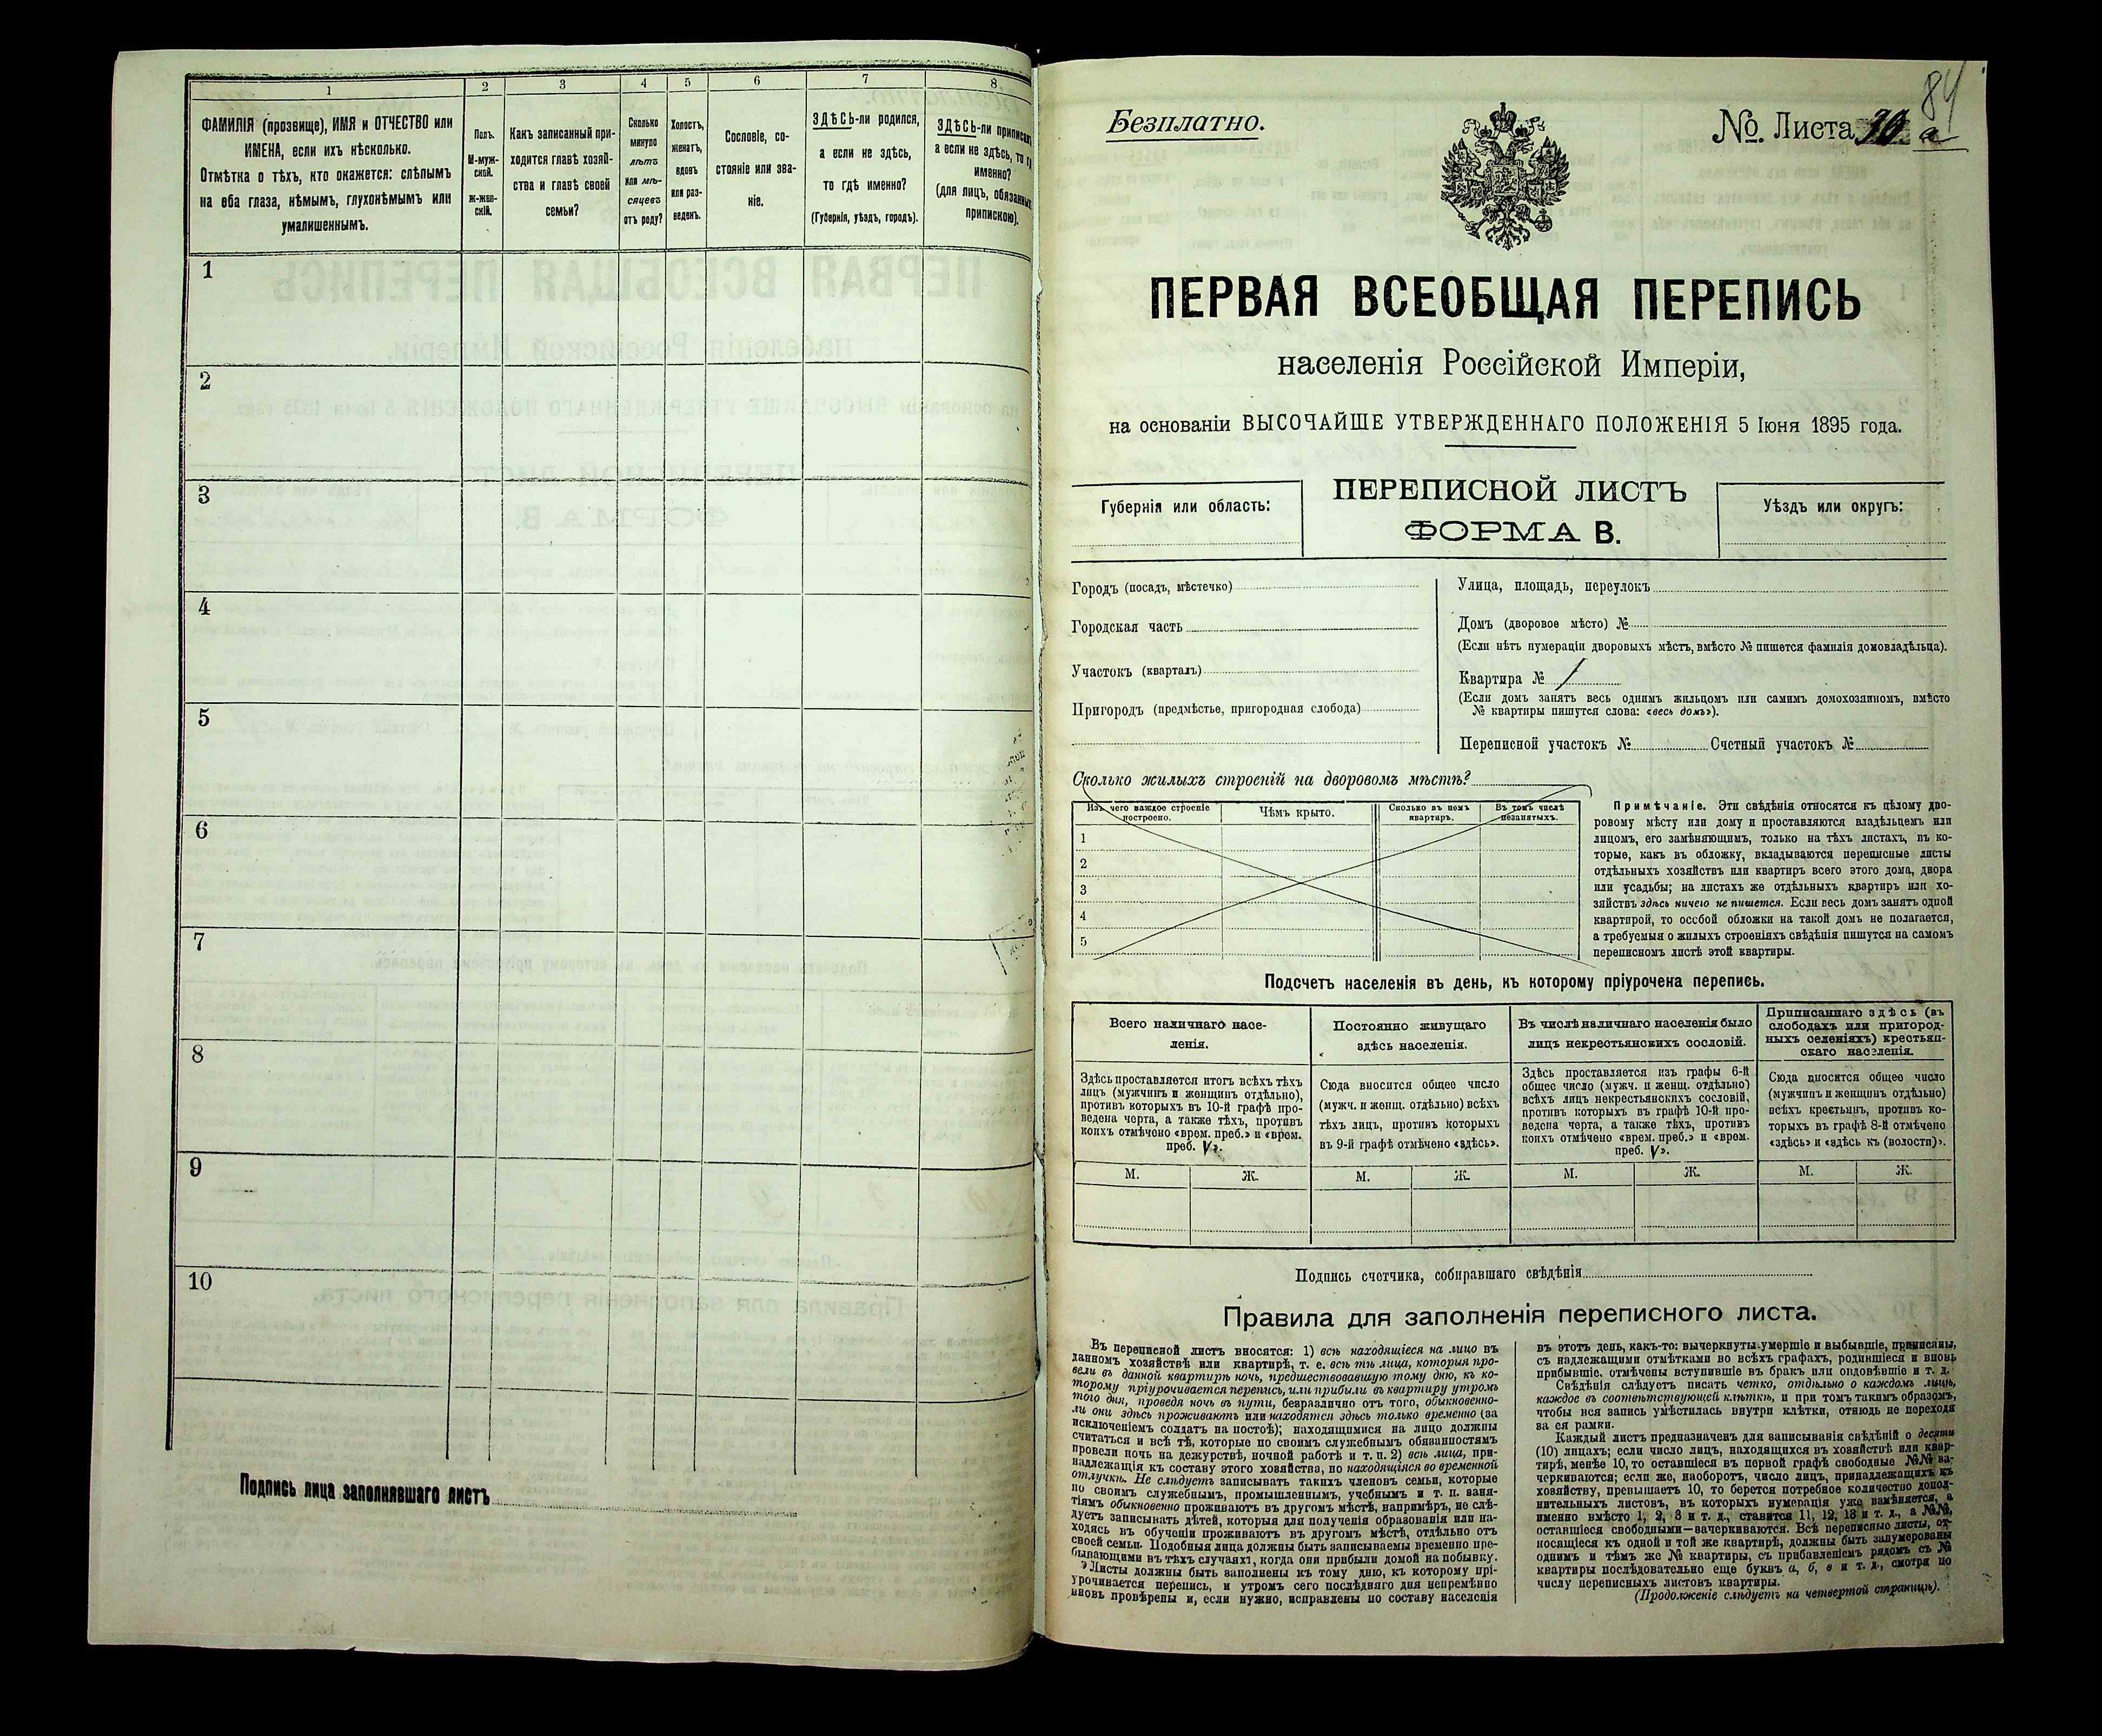 1
2
3
4
5
6
7
8
ФАМИЛІЯ (прозвище), ИМЯ и ОТЧЕСТВО или
ИМЕНА, если ихъ нѣсколько.
Отмѣтка о тѣхъ, кто окажется: слѣпымъ
на оба глаза, нѣмымъ, глухонѣмымъ или
умалишеннымъ.
Полъ.
М-муж-
ской.
Ж-жен-
скій.
Какъ записанный при-
ходится главѣ хозяй-
ства и главѣ своей
семьи?
Сколько
минуло
лѣтъ
или мѣ-
сяцевъ
отъ роду?
Холостъ,
женатъ,
вдовъ
или раз-
веденъ.
Сословіе, со-
стояніе или зва-
ніе.
ЗДѢСЬ-ли родился,
а если не здѣсь,
то гдѣ именно?
(Губернія, уѣздъ, городъ).
ЗДѢСЬ-ли приписанъ,
а если не здѣсь, то гдѣ
именно?
(для лицъ, обязанныхъ
припискою).
1
2
3
4
5
6
7
8
9
10
Подпись лица заполнявшаго листъ
84
Безплатно.
№ Листа а
ПЕРВАЯ ВСЕОБЩАЯ ПЕРЕПИСЬ
населенія Россійской Имперіи,
на основаніи ВЫСОЧАЙШЕ УТВЕРЖДЕННАГО ПОЛОЖЕНІЯ 5 Іюня 1895 года.
Губернія или область:
ПЕРЕПИСНОЙ ЛИСТЪ
ФОРМА В.
Уѣздъ или округъ:
Городъ (посадъ, мѣстечко)
Городская часть
Участокъ (кварталъ)
Пригородъ (предмѣстье, пригородная слобода)
Улица, площадь, переулокъ
Домъ (дворовое мѣсто) №
(Если нѣтъ нумераціи дворовыхъ мѣстъ, вмѣсто № пишется фамилія домовладѣльца).
Квартира № 1
(Если домъ занятъ весь однимъ жильцомъ или самимъ домохозяиномъ, вмѣсто
№ квартиры пишутся слова: «весь домъ»).
Переписной участокъ № Счетный участокъ №
Сколько жилыхъ строеній на дворовомъ мѣстѣ?
Изъ чего каждое строеніе
построено.
Чѣмъ крыто.
Сколько въ немъ
квартиръ.
Въ томъ числѣ
незанятыхъ.
1
2
3
4
5
Примѣчаніе. Эти свѣдѣнія относятся къ цѣлому дво-
ровому мѣсту или дому и проставляются владѣльцемъ или
лицомъ, его замѣняющимъ, только на тѣхъ листахъ, въ ко-
торые, какъ въ обложку, вкладываются переписные листы
отдѣльныхъ хозяйствъ или квартиръ всего этого дома, двора
или усадьбы; на листахъ же отдѣльныхъ квартиръ или хо-
зяйствъ здѣсь ничего не пишется. Если весь домъ занятъ одной
квартирой, то особой обложки на такой домъ не полагается,
а требуемыя о жилыхъ строеніяхъ свѣдѣнія пишутся на самомъ
переписномъ листѣ этой квартиры.
Подсчетъ населенія въ день, къ которому пріурочена перепись.
Всего наличнаго насе-
ленія.
Здѣсь проставляется итогъ всѣхъ тѣхъ
лицъ (мужчинъ и женщинъ отдѣльно),
противъ которыхъ въ 10-й графѣ про-
ведена черта, а также тѣхъ, противъ
коихъ отмѣчено «врем. преб.» и «врем.
преб. V».
Постоянно живущаго
здѣсь населенія.
Сюда вносится общее число
(мужч. и женщ. отдѣльно) всѣхъ
тѣхъ лицъ, противъ которыхъ
въ 9-й графѣ отмѣчено «здѣсь».
Въ числѣ наличнаго населенія было
лицъ некрестьянскихъ сословій.
Здѣсь проставляется изъ графы 6-й
общее число (мужч. и женщ. отдѣльно)
всѣхъ лицъ некрестьянскихъ сословій,
противъ которыхъ въ графѣ 10-й про-
ведена черта, а также тѣхъ, противъ
коихъ отмѣчено «врем. преб.» и «врем.
преб. V».
Приписаннаго здѣсь (въ
слободахъ или пригород-
ныхъ селеніяхъ) крестьян-
скаго населенія.
Сюда вносится общее число
(мужчинъ и женщинъ отдѣльно)
всѣхъ крестьянъ, противъ ко-
торыхъ въ графѣ 8-й отмѣчено
«здѣсь» и «здѣсь къ (волости)».
М. Ж. М. Ж. М. Ж. М. Ж.
Подпись счетчика, собиравшаго свѣдѣнія
Правила для заполненія переписного листа.
Въ переписной листъ вносятся: 1) всѣ находящіеся на лицо въ
данномъ хозяйствѣ или квартирѣ, т. е. всѣ тѣ лица, которыя про-
вели въ данной квартирѣ ночь, предшествовавшую тому дню, къ ко-
торому пріурочивается перепись, или прибыли въ квартиру утромъ
того дня, проведя ночь въ пути, безразлично отъ того, обыкновенно-
ли они здѣсь проживаютъ или находятся здѣсь только временно (за
исключеніемъ солдатъ на постоѣ); находящимися на лицо должны
считаться и всѣ тѣ, которые по своимъ служебнымъ обязанностямъ
провели ночь на дежурствѣ, ночной работѣ и т. п. 2) всѣ лица, при-
надлежащія къ составу этого хозяйства, но находящіяся во временной
отлучкѣ. Не слѣдуетъ записывать такихъ членовъ семьи, которые
по своимъ служебнымъ, промышленнымъ, учебнымъ и т. п. заня-
тіямъ обыкновенно проживаютъ въ другомъ мѣстѣ, напримѣръ, не слѣ-
дуетъ записывать дѣтей, которыя для полученія образованія или на-
ходясь въ обученіи проживаютъ въ другомъ мѣстѣ, отдѣльно отъ
своей семьи. Подобныя лица должны быть записываемы временно пре-
бывающими въ тѣхъ случаяхъ, когда они прибыли домой на побывку.
Листы должны быть заполнены къ тому дню, къ которому прі-
урочивается перепись, и утромъ сего послѣдняго дня непремѣнно
вновь провѣрены и, если нужно, исправлены по составу населенія
въ этотъ день, какъ-то: вычеркнуты умершіе и выбывшіе, приписаны,
съ надлежащими отмѣтками во всѣхъ графахъ, родившіеся и вновь
прибывшіе, отмѣчены вступившіе въ бракъ или овдовѣвшіе и т. д.
Свѣдѣнія слѣдуетъ писать четко, отдѣльно о каждомъ лицѣ,
каждое въ соотвѣтствующей клѣткѣ, и при томъ такимъ образомъ,
чтобы вся запись умѣстилась внутри клѣтки, отнюдь не переходя
за ея рамки.
Каждый листъ предназначенъ для записыванія свѣдѣній о десяти
(10) лицахъ; если число лицъ, находящихся въ хозяйствѣ или квар-
тирѣ, менѣе 10, то оставшіеся въ первой графѣ свободные №№ за-
черкиваются; если же, наоборотъ, число лицъ, принадлежащихъ къ
хозяйству, превышаетъ 10, то берется потребное количество допол-
нительныхъ листовъ, въ которыхъ нумерація уже измѣняется, а
именно вмѣсто 1, 2, 3 и т. д., ставится 11, 12, 13 и т. д., а №№,
оставшіеся свободными—зачеркиваются. Всѣ переписные листы, от-
носящіеся къ одной и той же квартирѣ, должны быть занумерованы
однимъ и тѣмъ же № квартиры, съ прибавленіемъ рядомъ съ №
квартиры послѣдовательно еще буквъ а, б, в и т. д., смотря по
числу переписныхъ листовъ квартиры.
(Продолженіе слѣдуетъ на четвертой страницѣ).